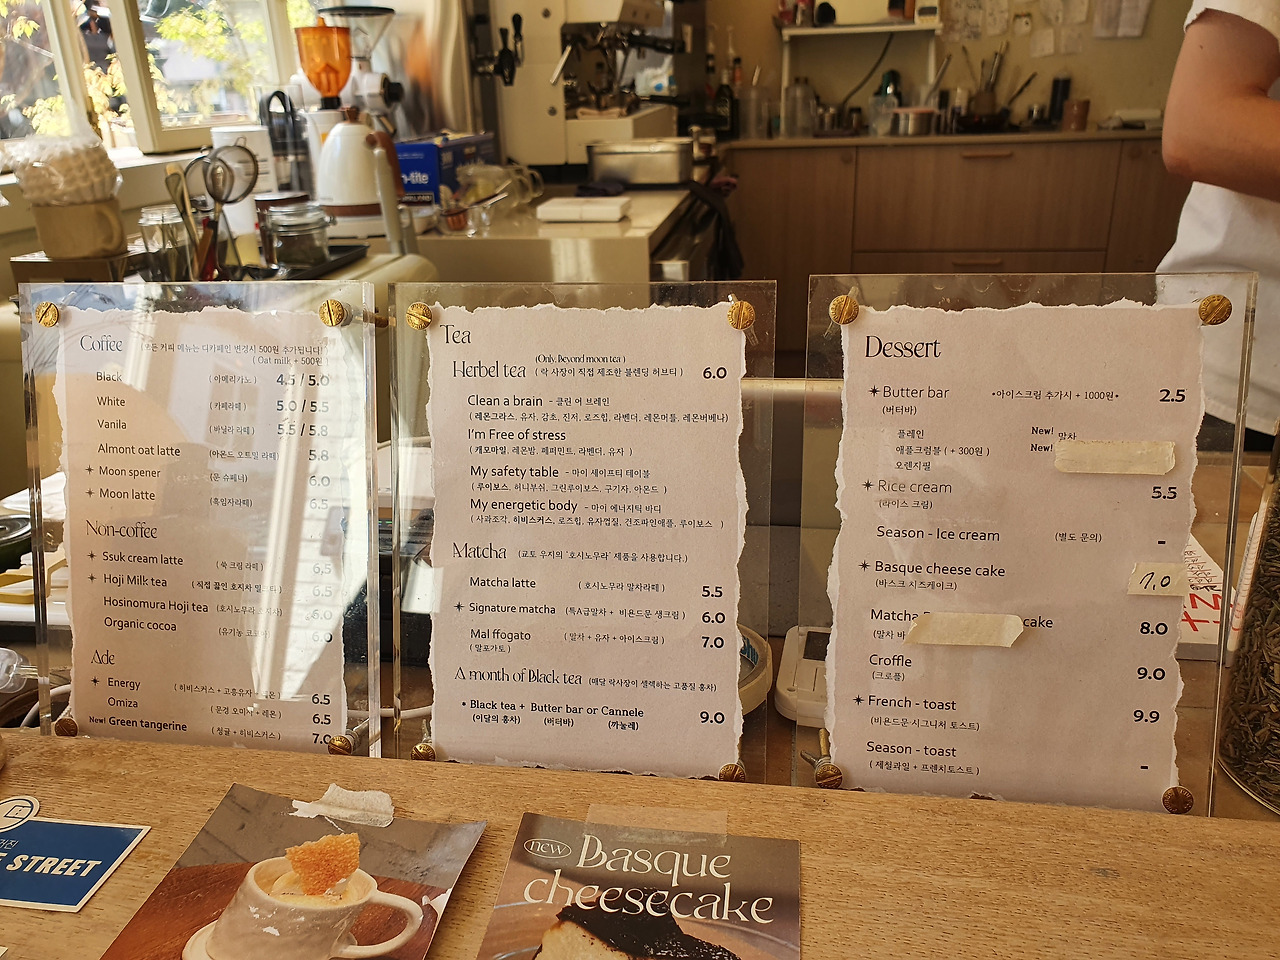 Coffee
(모든 커피 메뉴는 디카페인 변경시 500원 추가됩니다!)
( Oat milk + 500원 )
Black ( 아메리카노 ) 4.5 / 5.0
White ( 카페라떼 ) 5.0 / 5.5
Vanila ( 바닐라 라떼 ) 5.5 / 5.8
Almont oat latte (아몬드 오트밀 라떼) 5.8
Moon spener (문 슈페너) 6.0
Moon latte (흑임자라떼) 6.5
Non-coffee
Ssuk cream latte ( 쑥 크림 라떼 ) 6.5
Hoji Milk tea ( 직접 끓인 호지차 밀크티 ) 6.5
Hosinomura Hoji tea (호시노무라 호지사) 6.0
Organic cocoa (유기농 코코아) 6.0
Ade
Energy ( 히비스커스 + 고흥유자 + 레몬 ) 6.5
Omiza ( 문경 오미자 + 레몬 ) 6.5
New! Green tangerine ( 청귤 + 히비스커스 ) 7.0
Tea
(Only, Beyond moon tea )
Herbel tea ( 락 사장이 직접 제조한 블렌딩 허브티 ) 6.0
Clean a brain - 클린 어 브레인
( 레몬그라스, 유자, 감초, 진저, 로즈힙, 라벤더, 레몬머틀, 레몬버베나)
I'm Free of stress
( 캐모마일, 레몬밤, 페퍼민트, 라벤더, 유자 )
My safety table - 마이 세이프티 테이블
( 루이보스, 허니부쉬, 그린루이보스, 구기자, 아몬드 )
My energetic body - 마이 에너지틱 바디
( 사과조각, 히비스커스, 로즈힙, 유자껍질, 건조파인애플, 루이보스 )
Matcha (교토 우지의 '호시노무라' 제품을 사용합니다.)
Matcha latte ( 호시노무라 말차라떼 ) 5.5
Signature matcha (특A급말차 + 비욘드문 생크림 ) 6.0
Mal ffogato ( 말차 + 유자 + 아이스크림 ) 7.0
( 말포가토 )
A month of Black tea (매달 락사장이 셀렉하는 고품질 홍차)
• Black tea + Butter bar or Cannele 9.0
(이달의 홍차) (버터바) (까눌레)
Dessert
Butter bar •아이스크림 추가시 + 1000원• 2.5
(버터바)
플레인 New! 말차
애플크럼블 ( + 300원 ) New!
오렌지필
Rice cream 5.5
(라이스 크림)
Season - Ice cream (별도 문의) -
Basque cheese cake 7,0
(바스크 치즈케이크)
Matcha cake 8.0
(말차 바
Croffle 9.0
(크로플)
French - toast 9.9
(비욘드문 시그니처 토스트)
Season - toast -
( 제철과일 + 프렌치토스트 )
STREET
new Basque
cheesecake